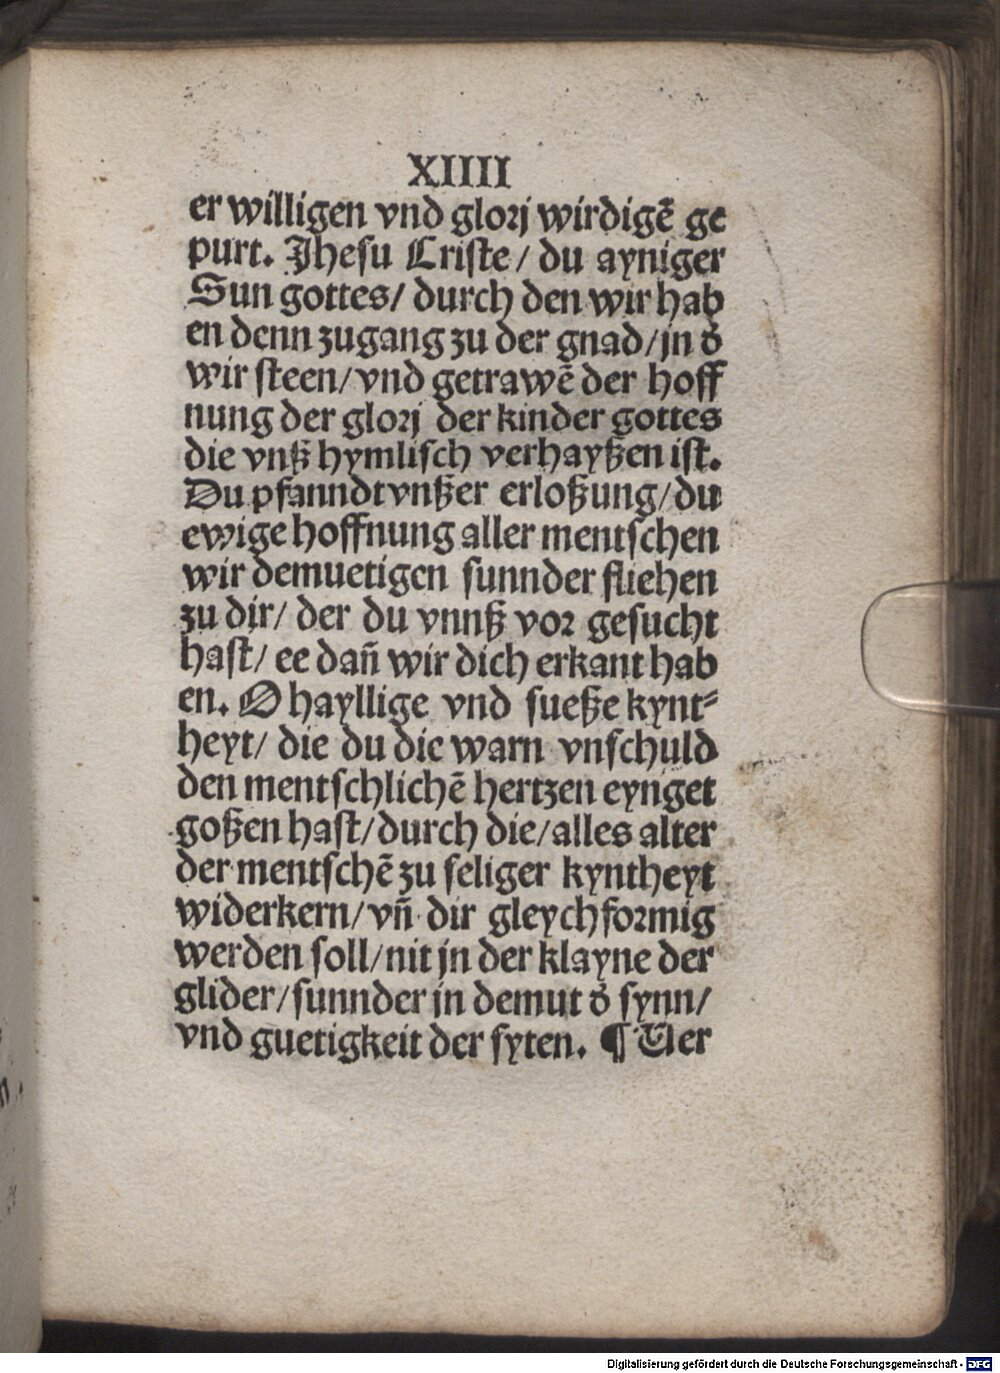 XIIII
er willigen vnd glorj wirdigẽ ge
purt. Jhesu Criste/ du ayniger
Sun gottes/ durch den wir hab
en denn zugang zu der gnad/jn d̕
wir steen/vnd getrawẽ der hoff
nung der glorj der kinder gottes
die vnß hymlisch verhayßen ist.
Du pfanndt vnßer erloßung/du
ewige hoffnung aller mentschen
wir demuetigen sunnder fliehen
zu dir/ der du vnnß vor gesucht
hast/ ee dan̄ wir dich erkant hab
en. O hayllige vnd sueße kynt⸗
heyt/ die du die warn vnschuld
den mentschlichẽ hertzen eynget
goßen hast/durch die/alles alter
der mentschẽ zu seliger kyntheyt
widerkern/vn̄ dir gleychformig
werden soll/nit jn der klayne der
glider/sunnder jn demut d̕ synn/
vnd guetigkeit der syten. ¶ Uer
Digitalisierung gefördert durch die Deutsche Forschungsgemeinschaft - DFG